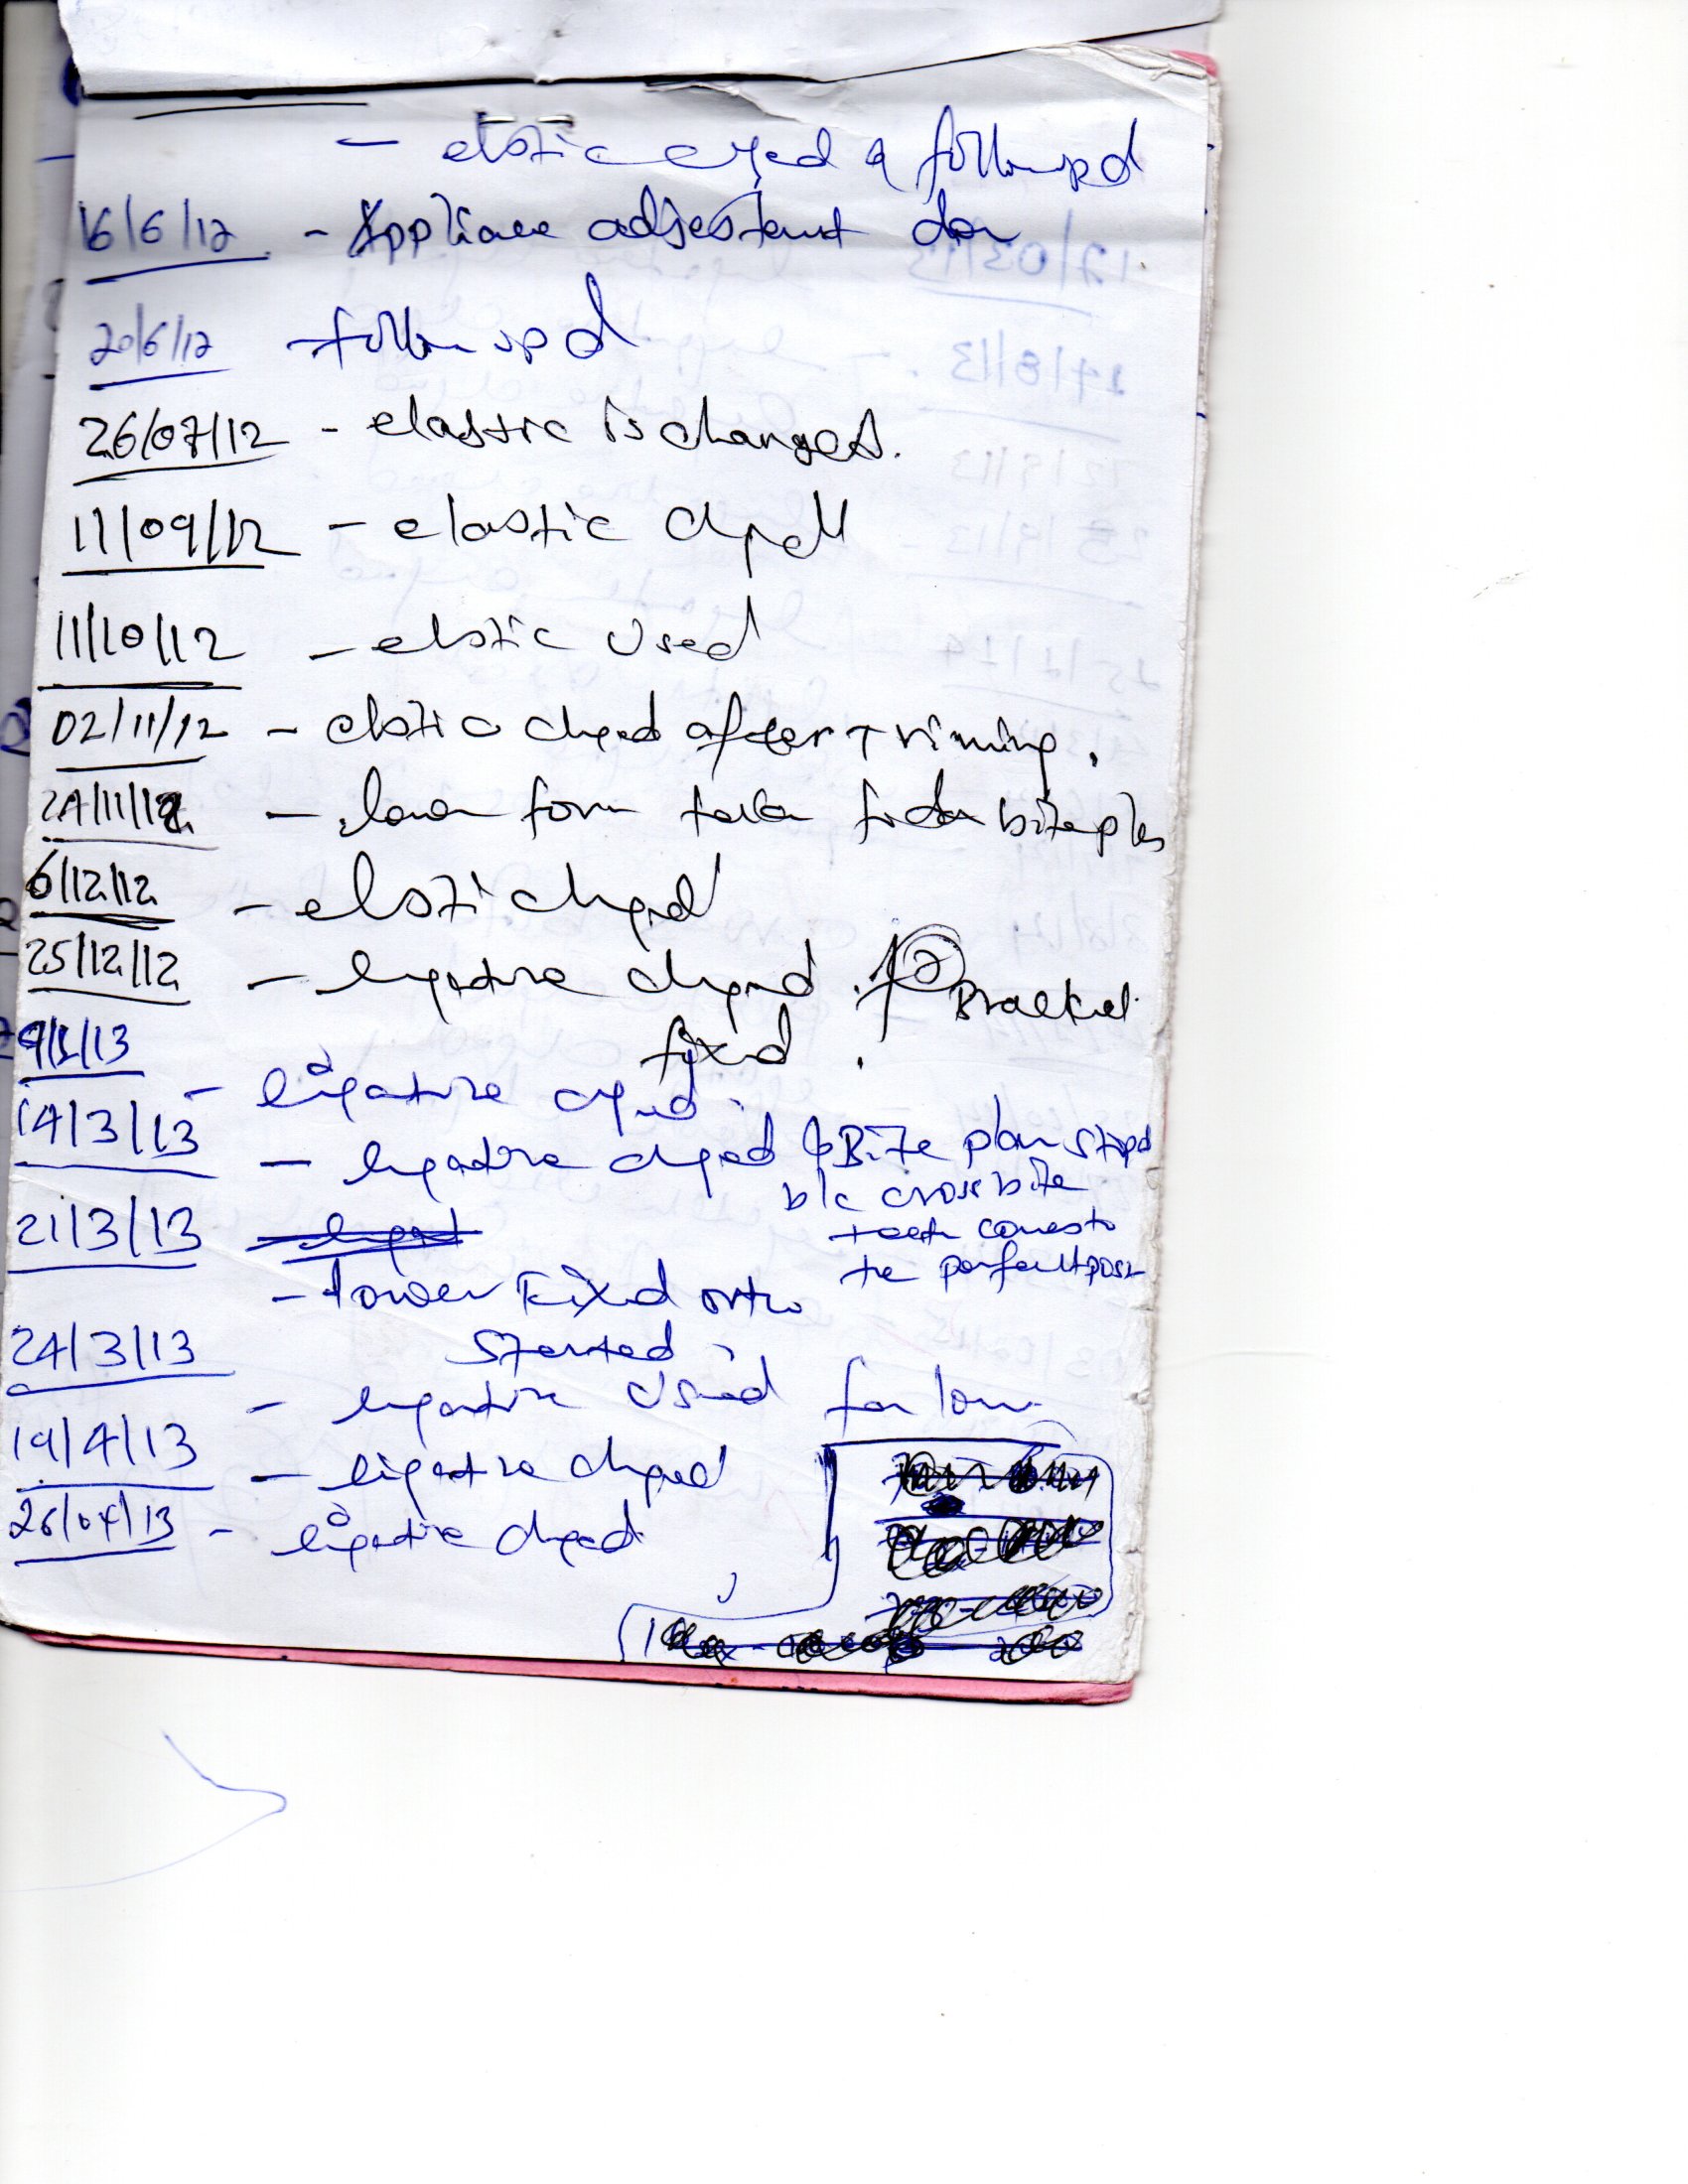 - elastic chged & followupd
16/6/12 - Appliance adjestemt don
20/6/12 - follow up d
26/07/12 - elastic is changed.
11/09/12 - elastic chged
11/10/12 - elastic used
02/11/12 - elastic chged after triming.
24/11/12 - lower form taken for bite plan
6/12/12 - elastic chged
25/12/12 - ligature chged. Bracket
fixed.
9/1/13
- ligature chged.
14/3/13 - ligature chged & Bite plan stopd
b/c cross bite
teeth comes to
the perfect posi
21/3/13
- lower Fixed ortho
started
24/3/13
- ligature used for low
19/4/13 - ligature chged
26/04/13 - ligature chged